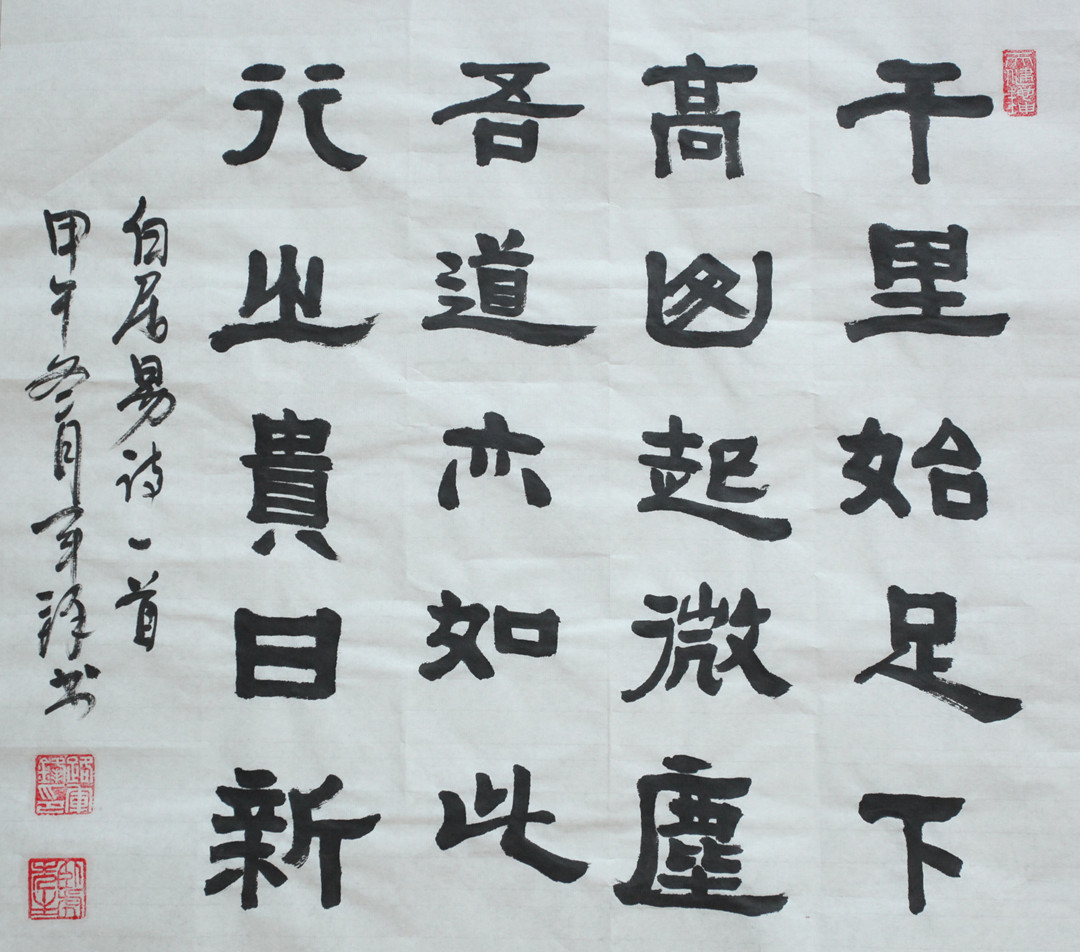 千里始足下
高山起微塵
吾道亦如此
行之貴日新
白居易诗一首
甲午冬月军书